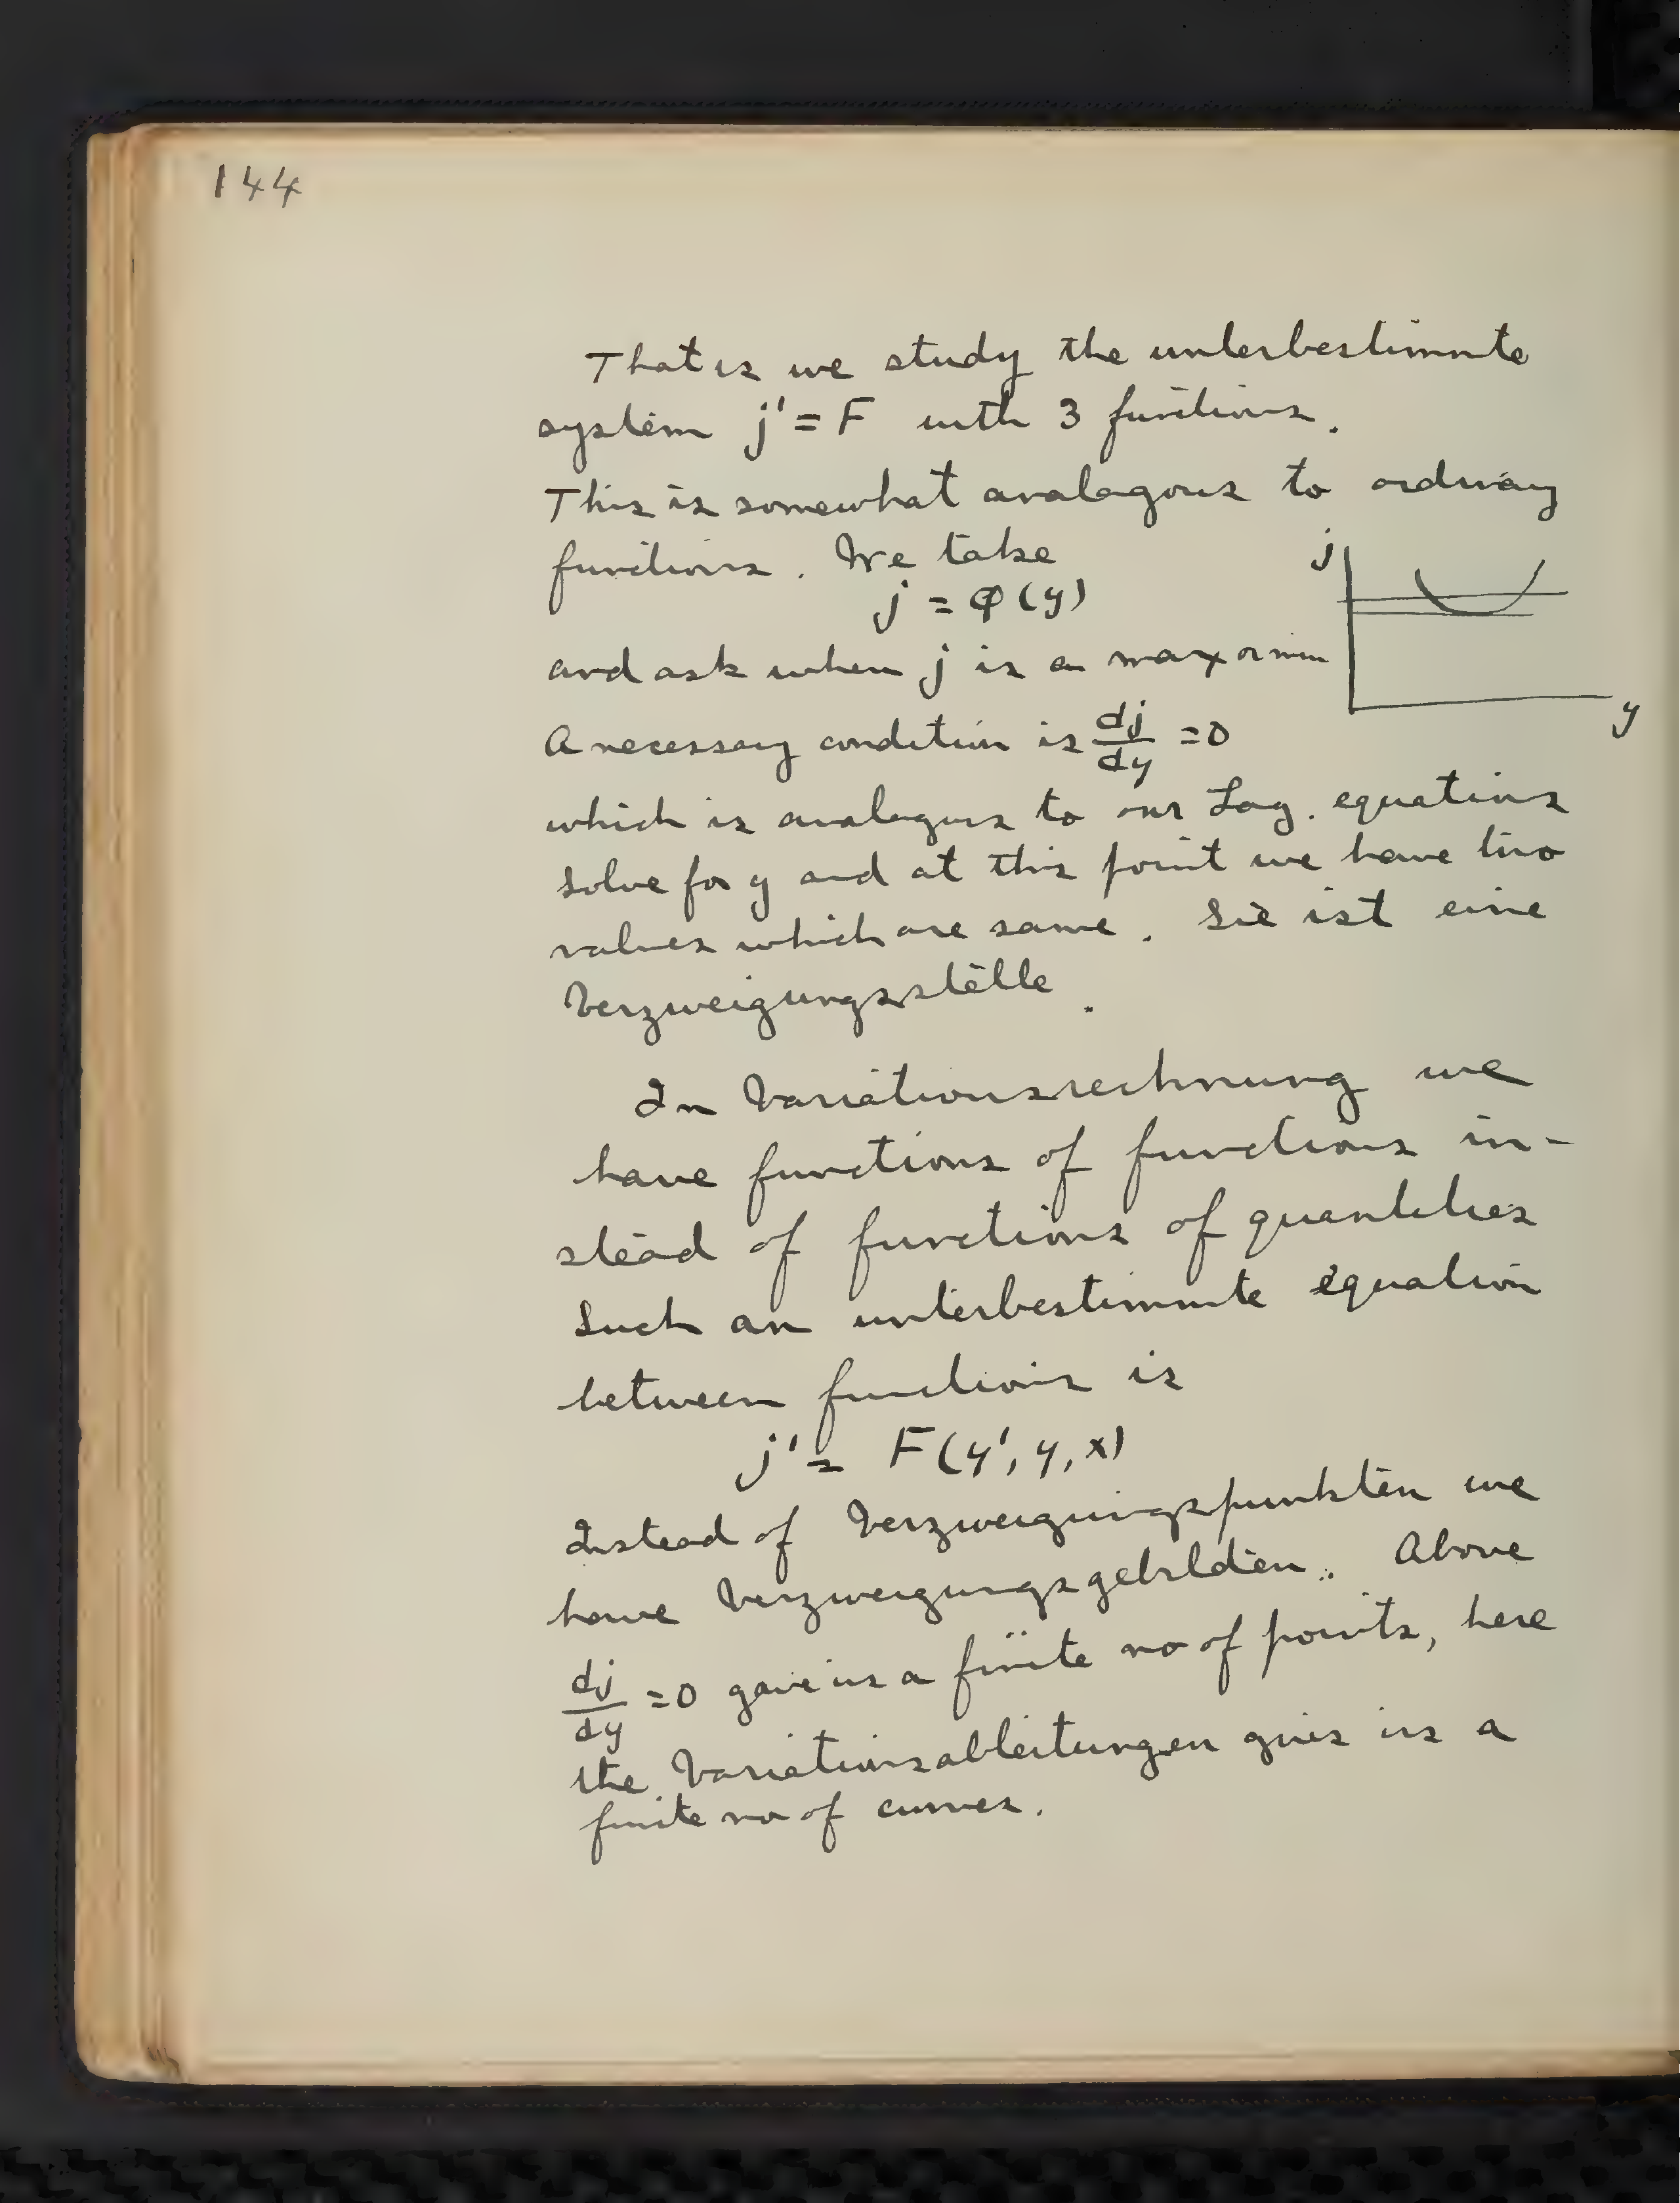 144
That is we study the unterbestimmte
system j' = F with 3 functions.
This is somewhat analagous to ordinary
functions. We take
j = φ(y)
j
y
and ask when j is a max or min
A necessary condition is dj/dy = 0
which is analogus to our Lag. equations
solve for y and at this point we have two
values which are same. Sie ist eine
Verzweigungsstelle.
In Variationsrechnung we
have functions of functions in-
stead of functions of quantities
Such an unterbestimmte equation
between functions is
j' = F(y', y, x)
Instead of Verzweigungspunkten we
have Verzweigungsgebilden. Above
dj/dy = 0 gave us a finite no of points, here
the Variationsableitungen gives us a
finite no of curves.